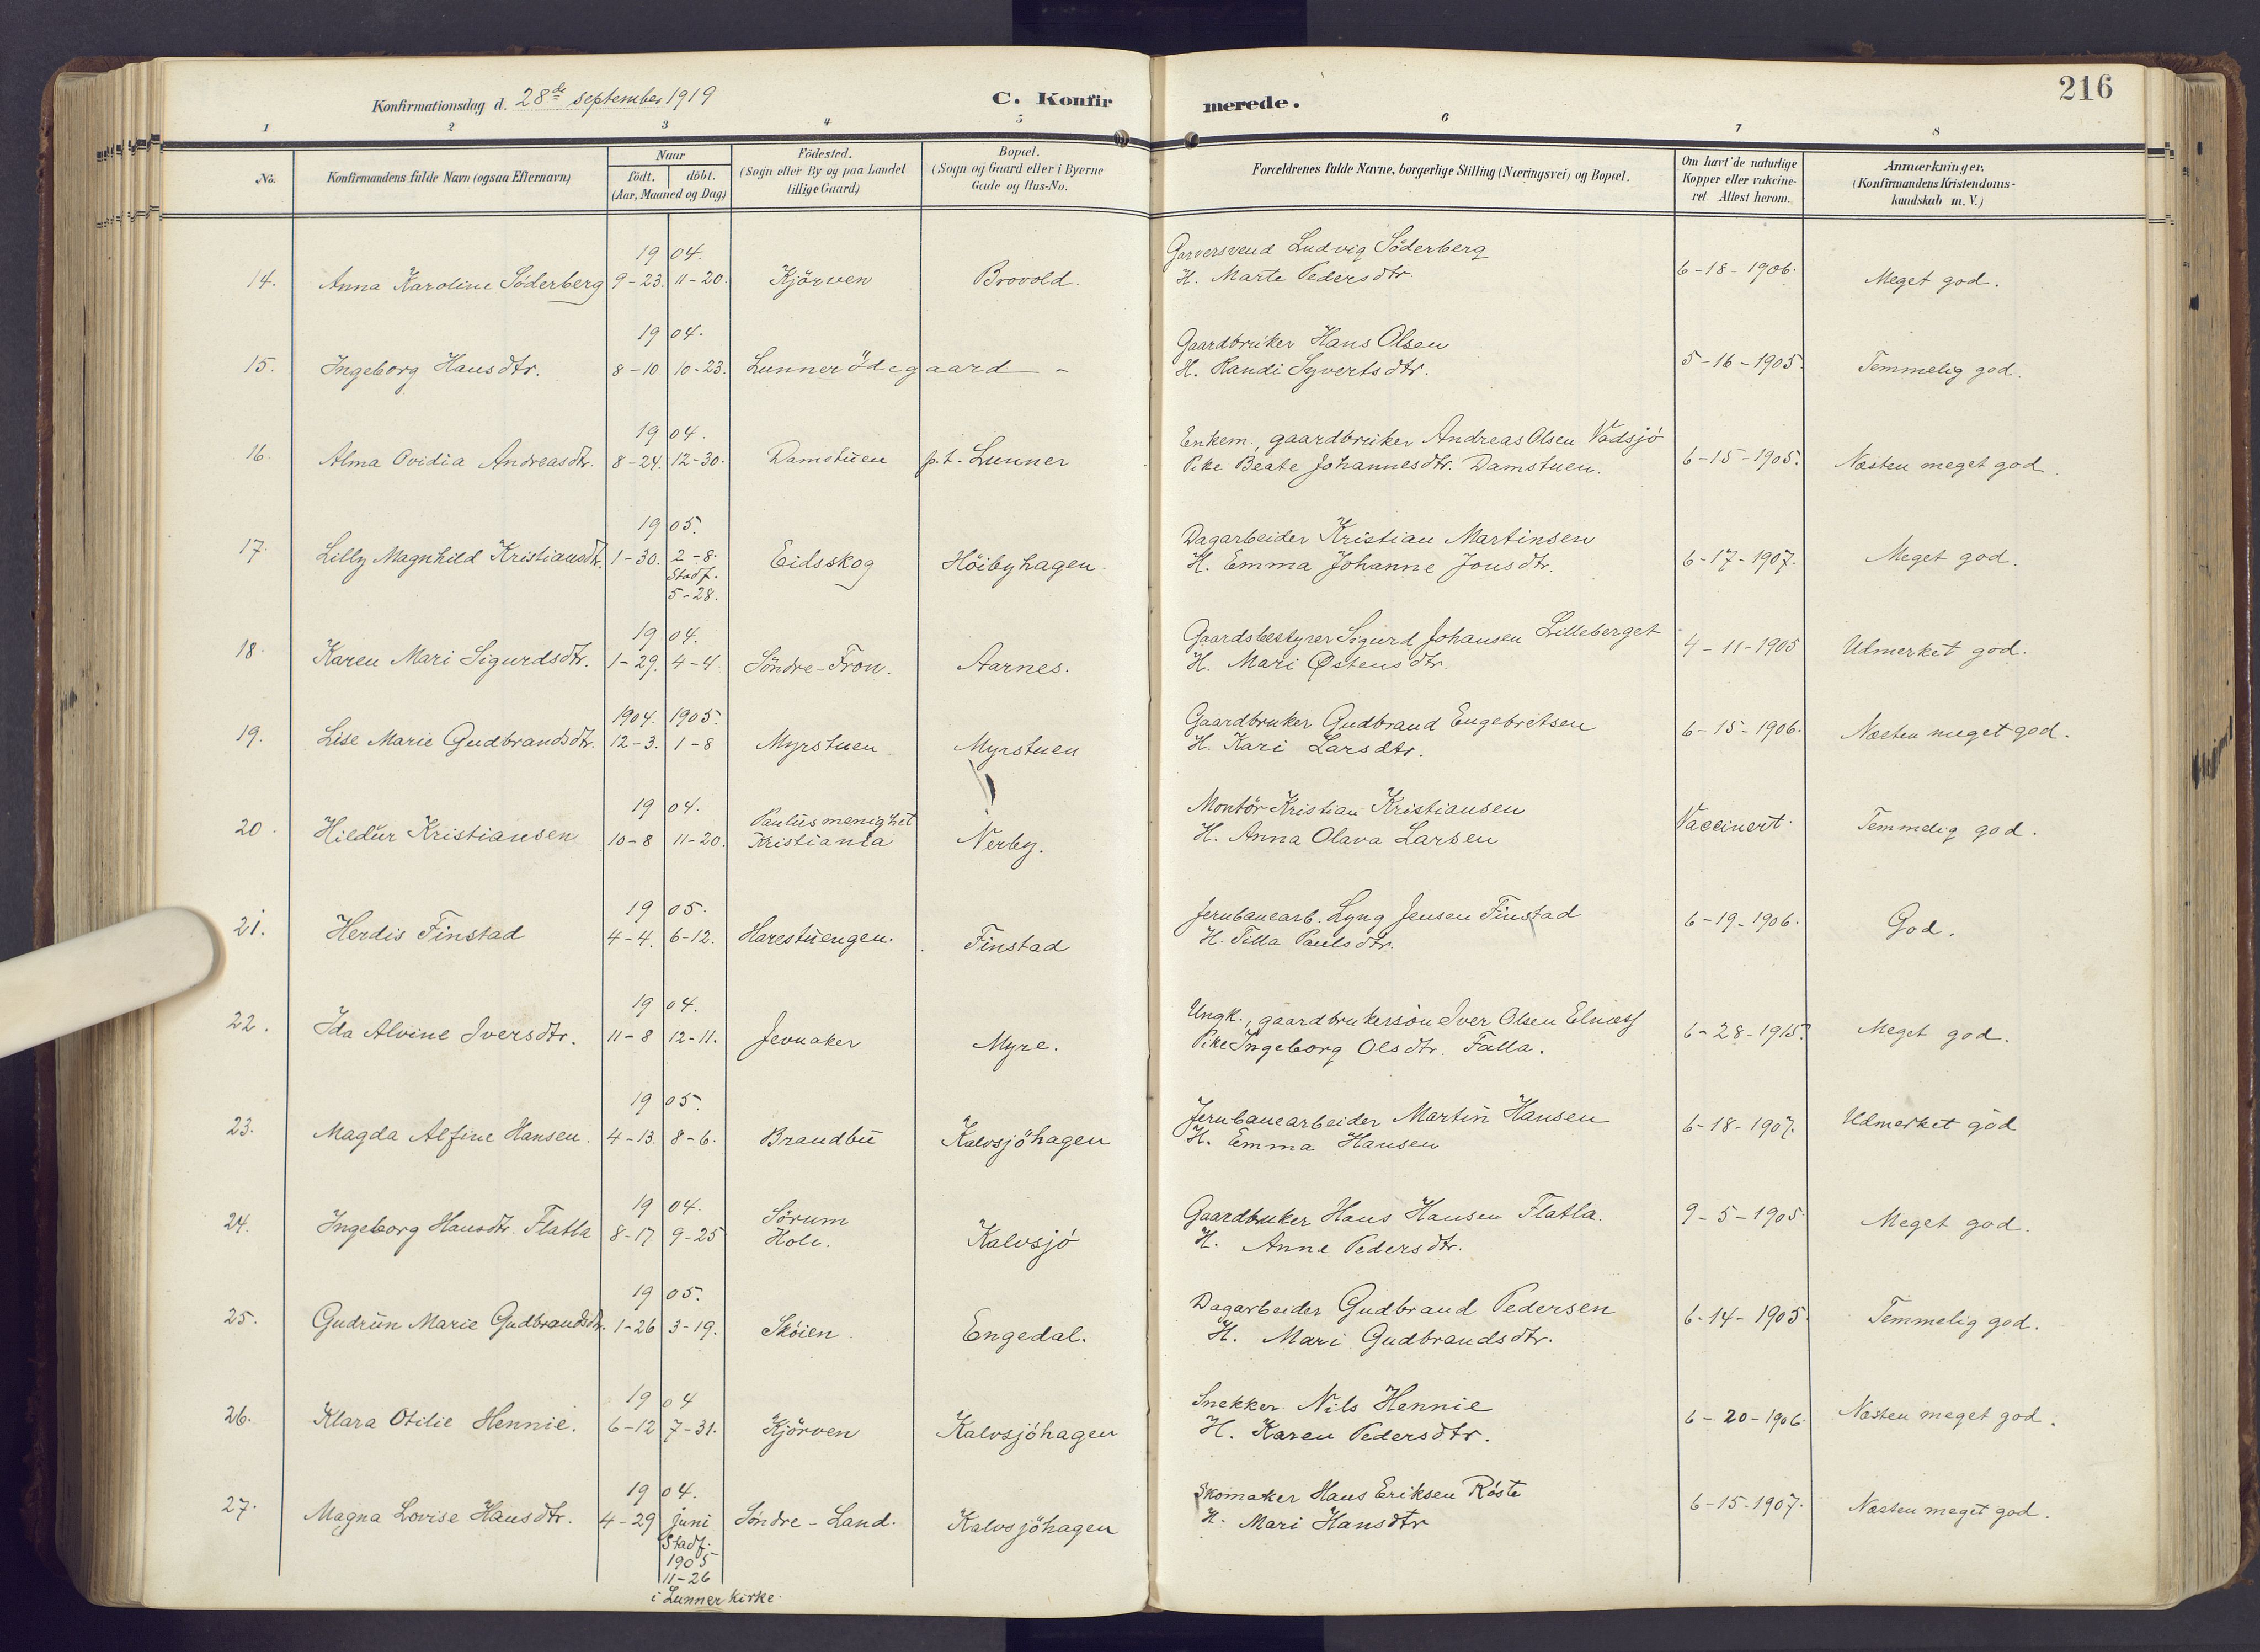 216
Konfirmationsdag d. 28de september 1919
C. Konfirmerede.
1 2 3 4 5 6 7 8
No.
Konfirmandens fulde Navn (ogsaa Efternavn)
Naar
födt. döbt.
(Aar, Maaned og Dag)
Födested.
(Sogn eller By og paa Landet
tillige Gaard)
Bopæl.
(Sogn og Gaard eller i Byerne
Gade og Hus-No.
Forældrenes fulde Navne, borgerlige Stilling (Næringsvei) og Bopæl.
Om havt de naturlige
Kopper eller vakcine-
ret Attest herom.
Anmærkninger.
(Konfirmandens Kristendoms-
kundskab m. V.)
19 04. Garversvend Ludvig Söderberg
14. Anna Karoline Söderberg 9-23. 11-20. Kjörven Brovold. H. Marte Pedersdtr. 6-18-1906. Meget god.
19 04. Gaardbruker Hans Olsen
15. Ingeborg Hansdtr. 8-10 10-23. Lunner ödegaard - H. Randi Syvertsdtr. 5-16-1905. Temmelig god.
19 04. Enkem., gaardbruker Andreas Olsen Vadsjö
16. Alma Ovidia Andreasdtr. 8-24. 12-30. Damstuen p.t. Lunner Pike Beate Johannesdtr. Damstuen. 6-15-1905. Næsten meget god
19 05. Dagarbeider Kristian Martinsen
17. Lilly Magnhild Kristiansdtr. 1-30. 2-8. Eidsskog Höibyhagen. H. Emma Johanne Jonsdtr. 6-17-1907. Meget god.
Stadf.
5-28.
19 04. Gaardsbestyrer Sigurd Johansen Lilleberget
18. Karen Mari Sigurdsdtr. 1-29. 4-4. Söndre-Fron. Aarnes. H. Mari Østensdtr. 4-11-1905 Udmerket god.
1904. 1905. Gaardbruker Gudbrand Engebretsen
19. Lise Marie Gudbrandsdtr. 12-3. 1-8 Myrstuen Myrstuen H. Kari Larsdtr. 6-15-1906. Næsten meget god.
19 04. Paulus menighet Montör Kristian Kristiansen
20. Hildur Kristiansen 10-8 11-20. Kristiania Nerby. H. Anna Olava Larsen Vaccinert. Temmelig god.
19 05. Jernbanearb. Lyng Jensen Finstad
21. Herdis Finstad 4-4. 6-12. Harestuengen. Finstad H. Tilla Paulsdtr. 6-19-1906. God.
19 04. Ungk., gaardbrukersön Iver Olsen
22. Ida Alvine Iversdtr. 11-8 12-11. Jevnaker Myre. Pike Ingeborg Olsdtr. Falla. 6-28-1915. Meget god.
19 05. Jernbanearbeider Martin Hansen
23. Magda Alfine Hansen. 4-13. 8-6. Brandbu Kalvsjöhagen H. Emma Hansen 6-18-1907. Udmerket god
19 04. Sörum Gaardbruker Hans Hansen Flatla.
24. Ingeborg Hansdtr. Flatla 8-17. 9-25 Hole. Kalvsjö H. Anne Pedersdtr. 9-5-1905. Meget god.
19 05. Dagarbeider Gudbrand Pedersen
25. Gudrun Marie Gudbrandsdtr. 1-26 3-19. Sköien. Engedal. H. Mari Gudbrandsdtr. 6-14-1905. Temmelig god.
19 04 Snekker Nils Hennie
26. Klara Otilie Hennie. 6-12 7-31. Kjörven Kalvsjöhagen H. Karen Pedersdtr. 6-20-1906. Næsten meget god.
19 04. Skomaker Hans Eriksen Röste
27. Magna Lovise Hansdtr. 4-29 juni Söndre-Land. Kalvsjöhagen H. Mari Hansdtr 6-15-1907. Næsten meget god.
Stadf.
1905
11-26
i Lunner kirke.